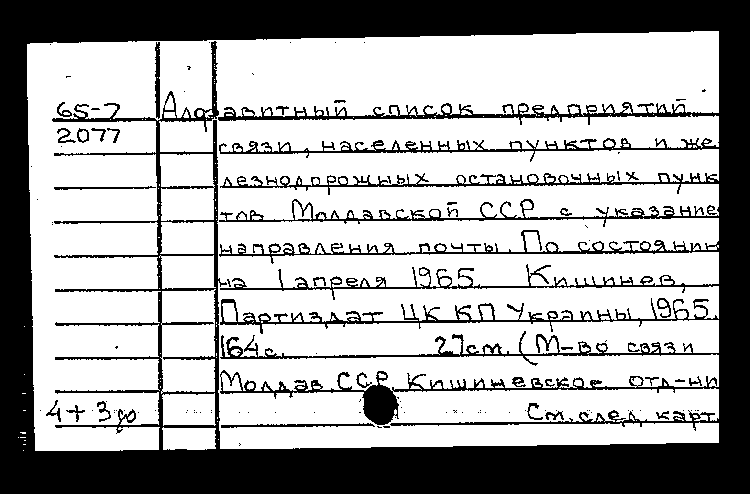 65-7 Алфавитный список предприятий
2077 связи, населенных пунктов и же
лезнодорожных остановочных пунк
тов Молдавской ССР с указание
направления почты. По состоянию
на 1 апреля 1965. Кишинев,
Партиздат ЦК КП Украины, 1965.
164 с. 27 см. (М-во связи
Молдав. ССР. Кишиневское отд-ни
4 + 3 до См. след. карт.